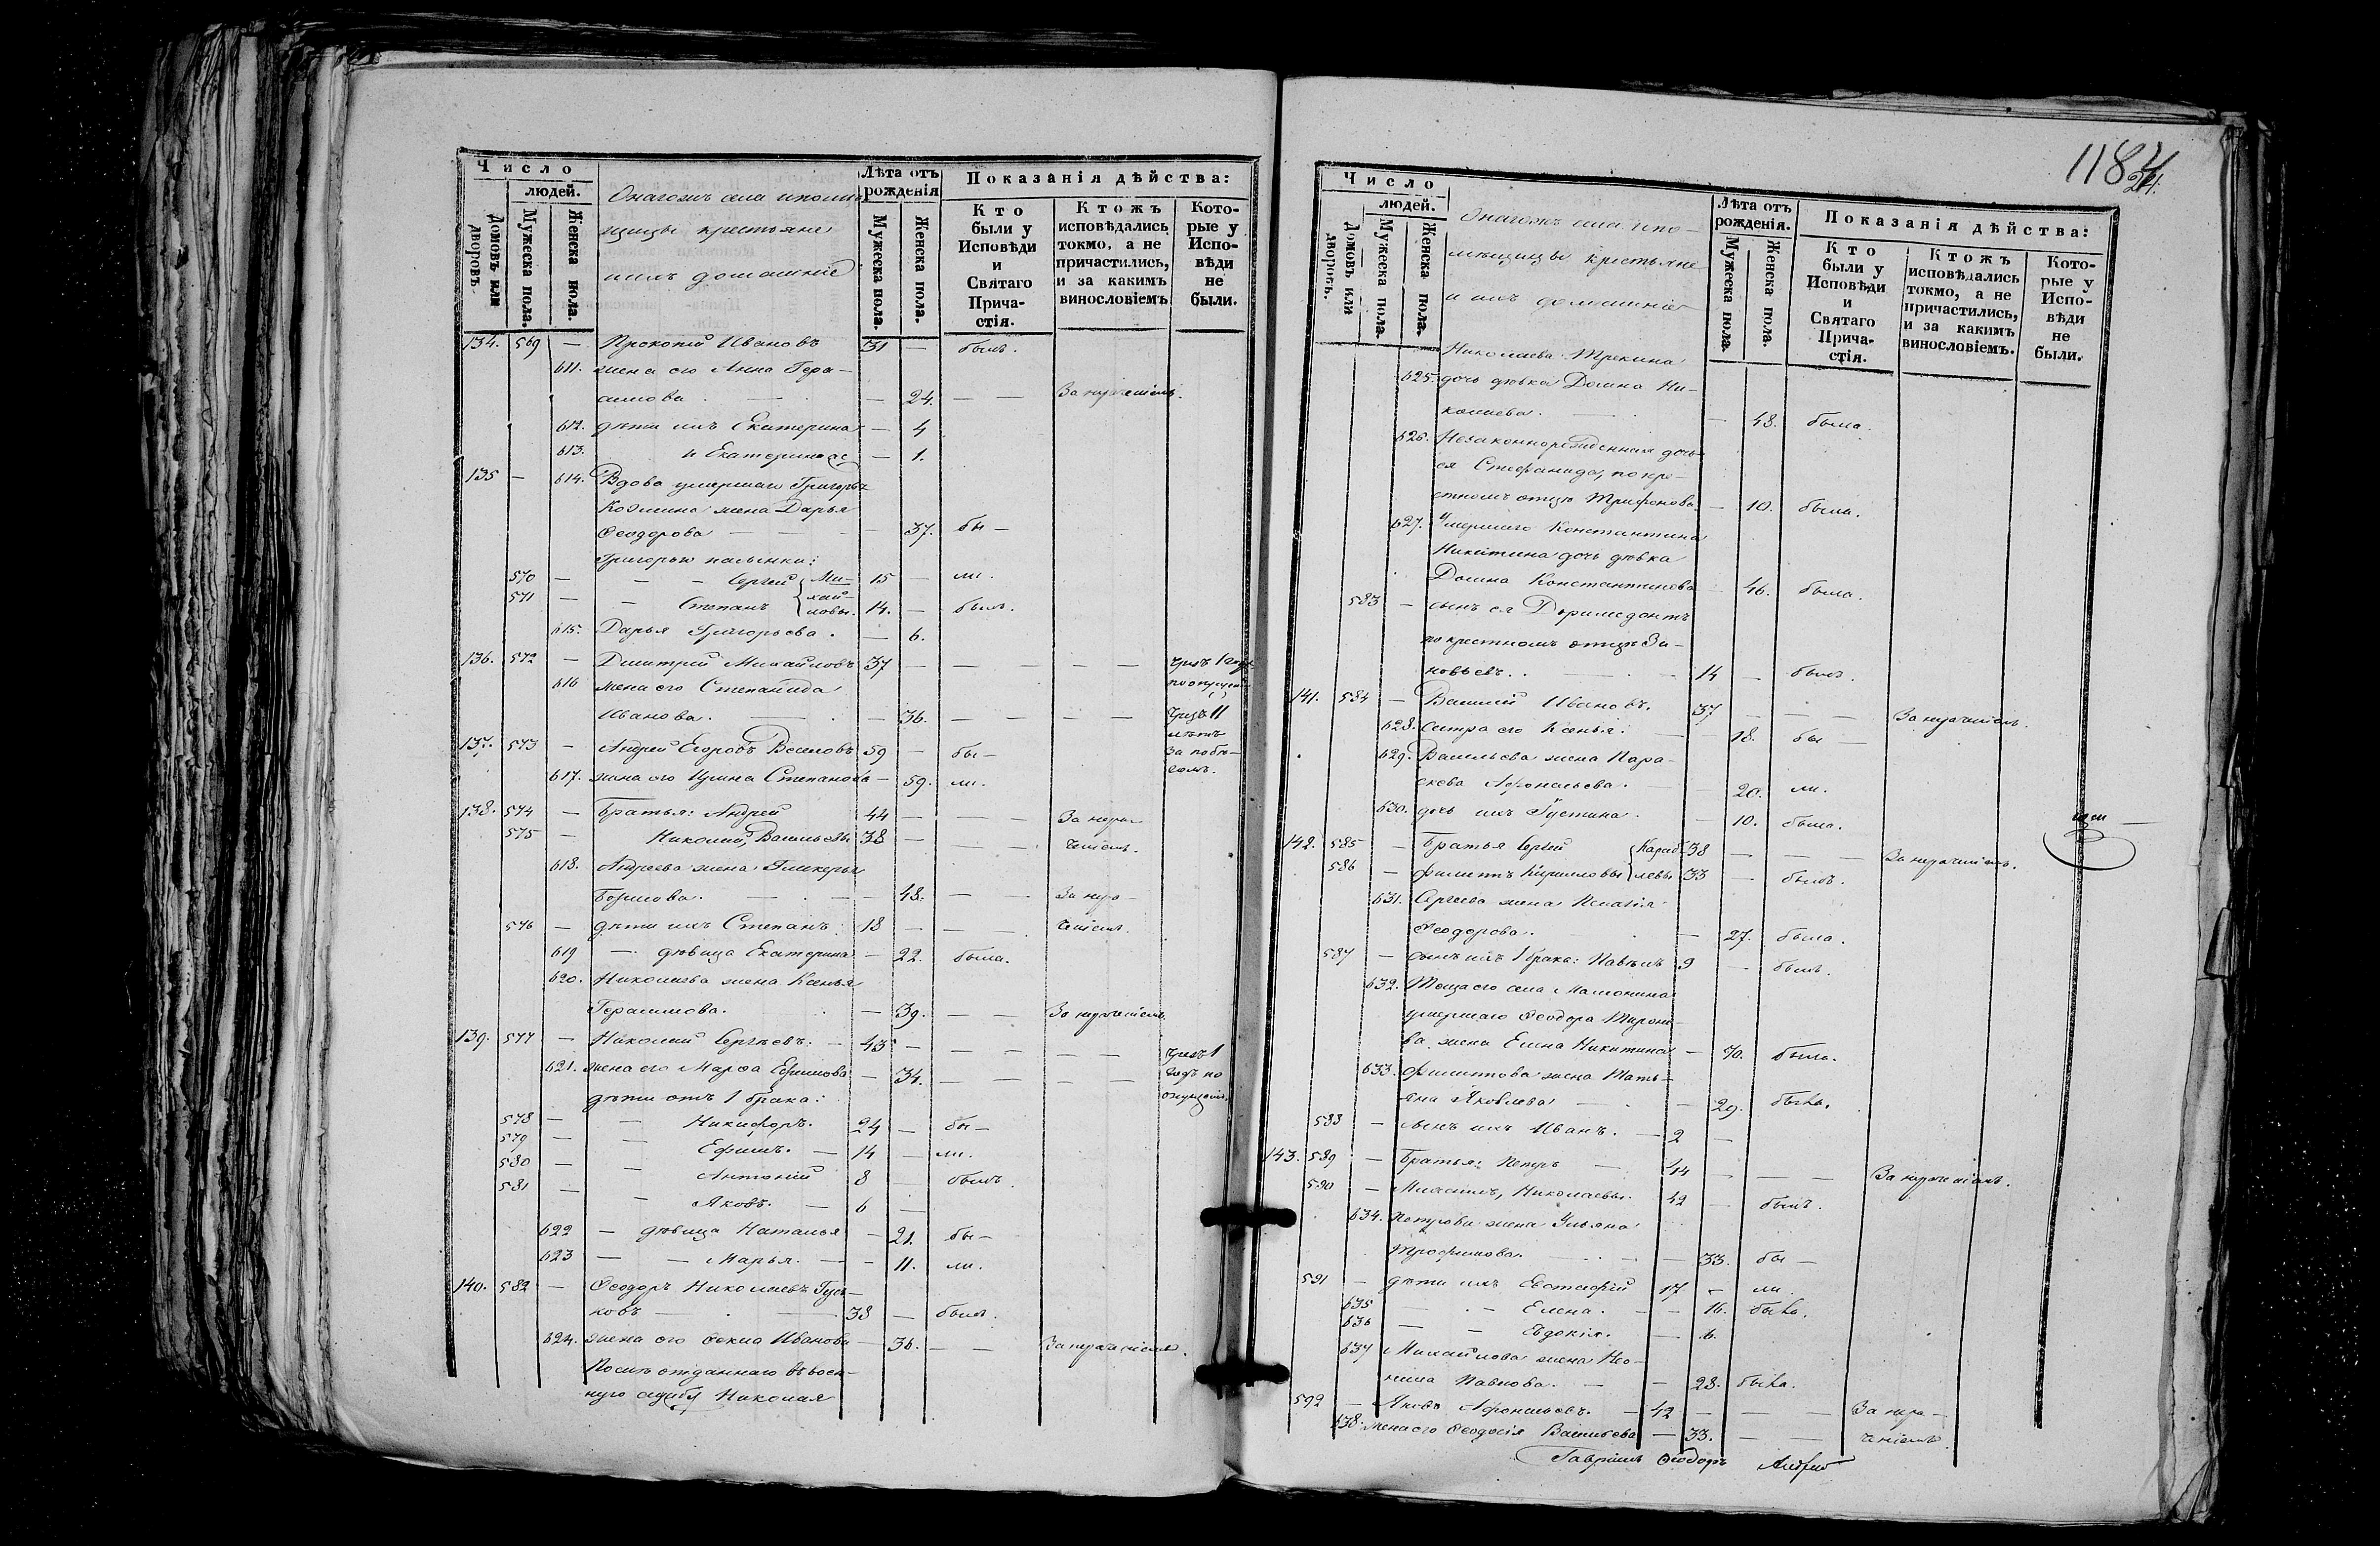 Число
людей.
Домовъ или дворовъ.
Мужеска пола.
Женска пола.
Онагожъ села и помѣ-
щицы крестьяне
и ихъ домашніе
Лѣта отъ рожденія
Мужеска пола.
Женска пола.
Показанія дѣйства:
Кто были у Исповѣди и Святаго Прича-стія.
Ктожъ исповѣдались токмо, а не причастились, и за какимъ винословіемъ
Кото-рые у Испо-вѣди не были.
134. 569 — Прокопій Ивановъ 31 — былъ.
611. жена его Анна Гера-
симова — 24. — — За нераченіемъ.
612. дѣти ихъ Екатерина — 4
613. и Екатерина — 1.
135 — 614. Вдова умершаго Григорья
Козмина жена Дарья
Ѳеодорова — 37. бы —
Григорью пасынки:
570 — — — Сергій Ми- 15 — ли.
571 — — Степанъ хай-ловы. 14. — былъ.
615. Дарья Григорьева. — 6.
136. 572 — Дмитрій Михайловъ 37 — — — — — чрезъ 1 годъ
по опущен.
616 жена его Степанида
Иванова. — 36. — — — — чрезъ 11
лѣтъ
137. 573 — Андрей Егоровъ 59 — бы — За побѣ-
гомъ.
617. жена его Ирина Степанова — 59. ли.
138. 574 — Братья: Андрей 44 — — — За нера-
575 — Николай, Васильевы 38 — — — ченіемъ.
618. Андреева жена Гликерья
Борисова. — 48. — — За нера-
576 — дѣти ихъ Степанъ. 18 — — — ченіемъ.
619 — дѣвица Екатерина — 22. была.
620. Николаева жена Ксенья
Герасимова. — 39. — — За нераченіемъ
139. 577 — Николай Сергѣевъ. — 43 — — — — — чрезъ 1
621. жена его Марѳа Ефимова — 34. — — — — годъ по
дѣти отъ 1 брака: опущен.
578 — — Никифоръ. 24 — бы —
579 — — Ефимъ. — 14 — ли.
580 — — Антоній 8 — былъ.
581 — — Яковъ. — 6 —
622 — дѣвица Наталья — 21. бы —
623 — — Марья. — — 11. ли.
140. 582 — Ѳеодоръ Николаевъ Гусь-
ковъ — 38 — былъ.
624. жена его Ѳекла Иванова — 36. — — За нераченіемъ.
Послѣ отданнаго въ воен-
ную службу Николая
118
Число
людей.
Домовъ или дворовъ.
Мужеска пола.
Женска пола.
Онагожъ села и по-
мѣщицы крестьяне
и ихъ домашніе
Лѣта отъ рожденія.
Мужеска пола.
Женска пола.
Показанія дѣйства:
Кто были у Исповѣди и Святаго Прича-стія.
Ктожъ исповѣдались токмо, а не причастились, и за какимъ винословіемъ.
Кото-рые у Испо-вѣди не были.
Николаева
625. дочь дѣвка Домна Ни-
колаева. — 48. была.
626. Незаконнорожденная дочь
ея Стефанида, по кре-
стномъ отцѣ Трифонова — 10. была.
627. Умершаго Константина
Никитина дочь дѣвка
Домна Константинова 46. была.
583 — сынъ ея Доримедонтъ
по крестномъ отцѣ Зи-
новьевъ. — 14 — былъ.
141. 584 — Василій Ивановъ. 37 — — — За нераченіемъ.
628. сестра его Ксенья. — 18. бы —
629. Васильева жена Пара-
скева Афонасьева. — 20. ли.
630. дочь ихъ Густина. — 10. была.
142. 585 — Братья Сергій Караб- 38 — — — За нераченіемъ.
586 — Филиппъ Кирилловы левы 33 — былъ.
631. Сергеева жена Пелагія
Ѳеодорова. — 27. была.
587 — сынъ ихъ 1 брака: Павелъ 9 — былъ.
632. Теща его села Мамонина
умершаго Ѳеодора Мироно-
ва жена Елена Никитина — 70. была.
633. Филиппова жена Тать-
яна Яковлева — 29. была.
588 — сынъ ихъ Иванъ. — 2 —
143. 589 — Братья: Петръ — 44 — — — За нераченіемъ.
590 — Михаилъ, Николаевы. 42 — былъ.
634. Петрова жена Ульяна
Трофимова. — 33. бы —
591 — дѣти ихъ Евстафій 17 — ли.
635 — — Елена. — — 16. была.
636 — — Евдокія. — 6.
637 Михайлова жена Нео-
нила Павлова. — — 28. была.
592 — Яковъ Афонасьевъ. — 42 — — — За нера-
638. жена его Ѳеодосія Васильева — 33. — — ченіемъ.
Гавріилъ Ѳеодоръ Андрей